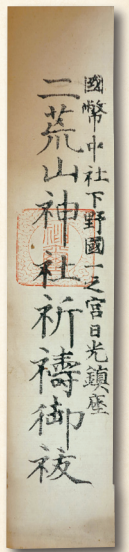 國幣中社下野國一之宮日光鎮座
二荒山神社祈禱御祓